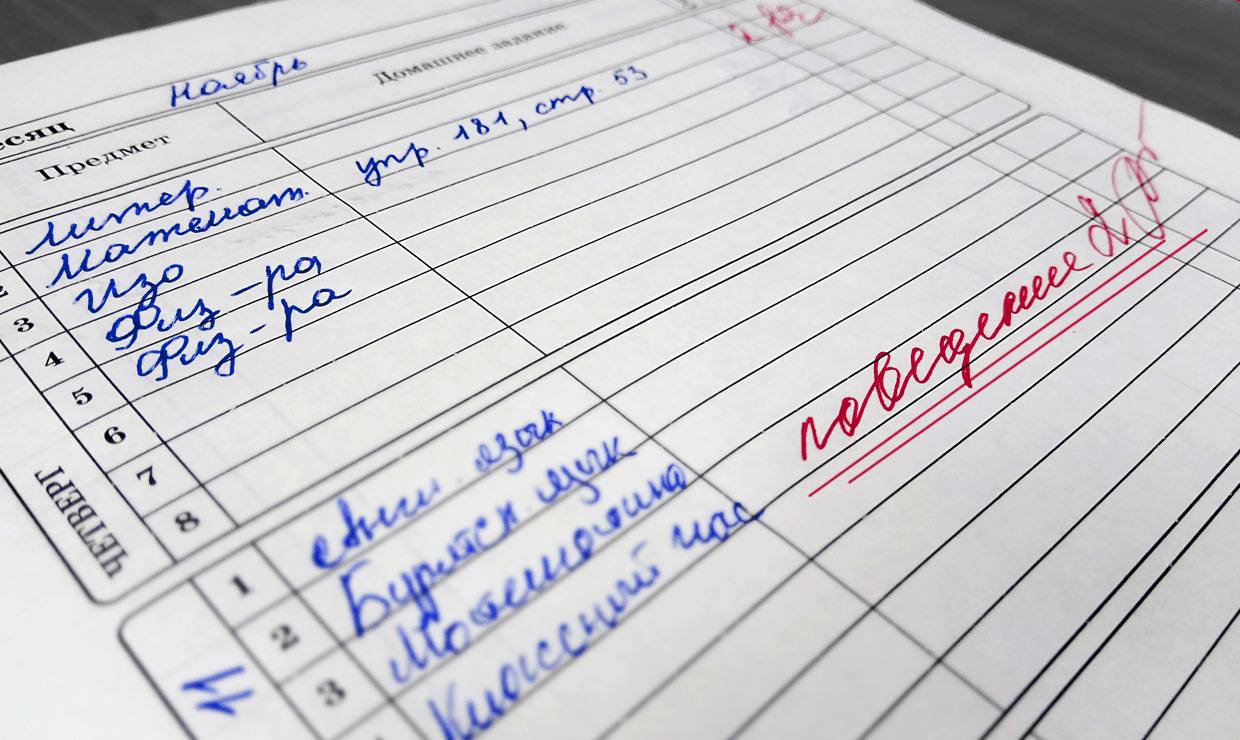 Ноябрь
Домашнее задание
есяц
Предмет
Литер. упр. 181, стр. 53
Математ.
3 Изо
4 Физ-ра
5 Физ-ра
6
7
8
ЧЕТВЕРГ
поведение 2
1 Англ. язык
2 Бурятск. язык
3 Математика
Классный час
11